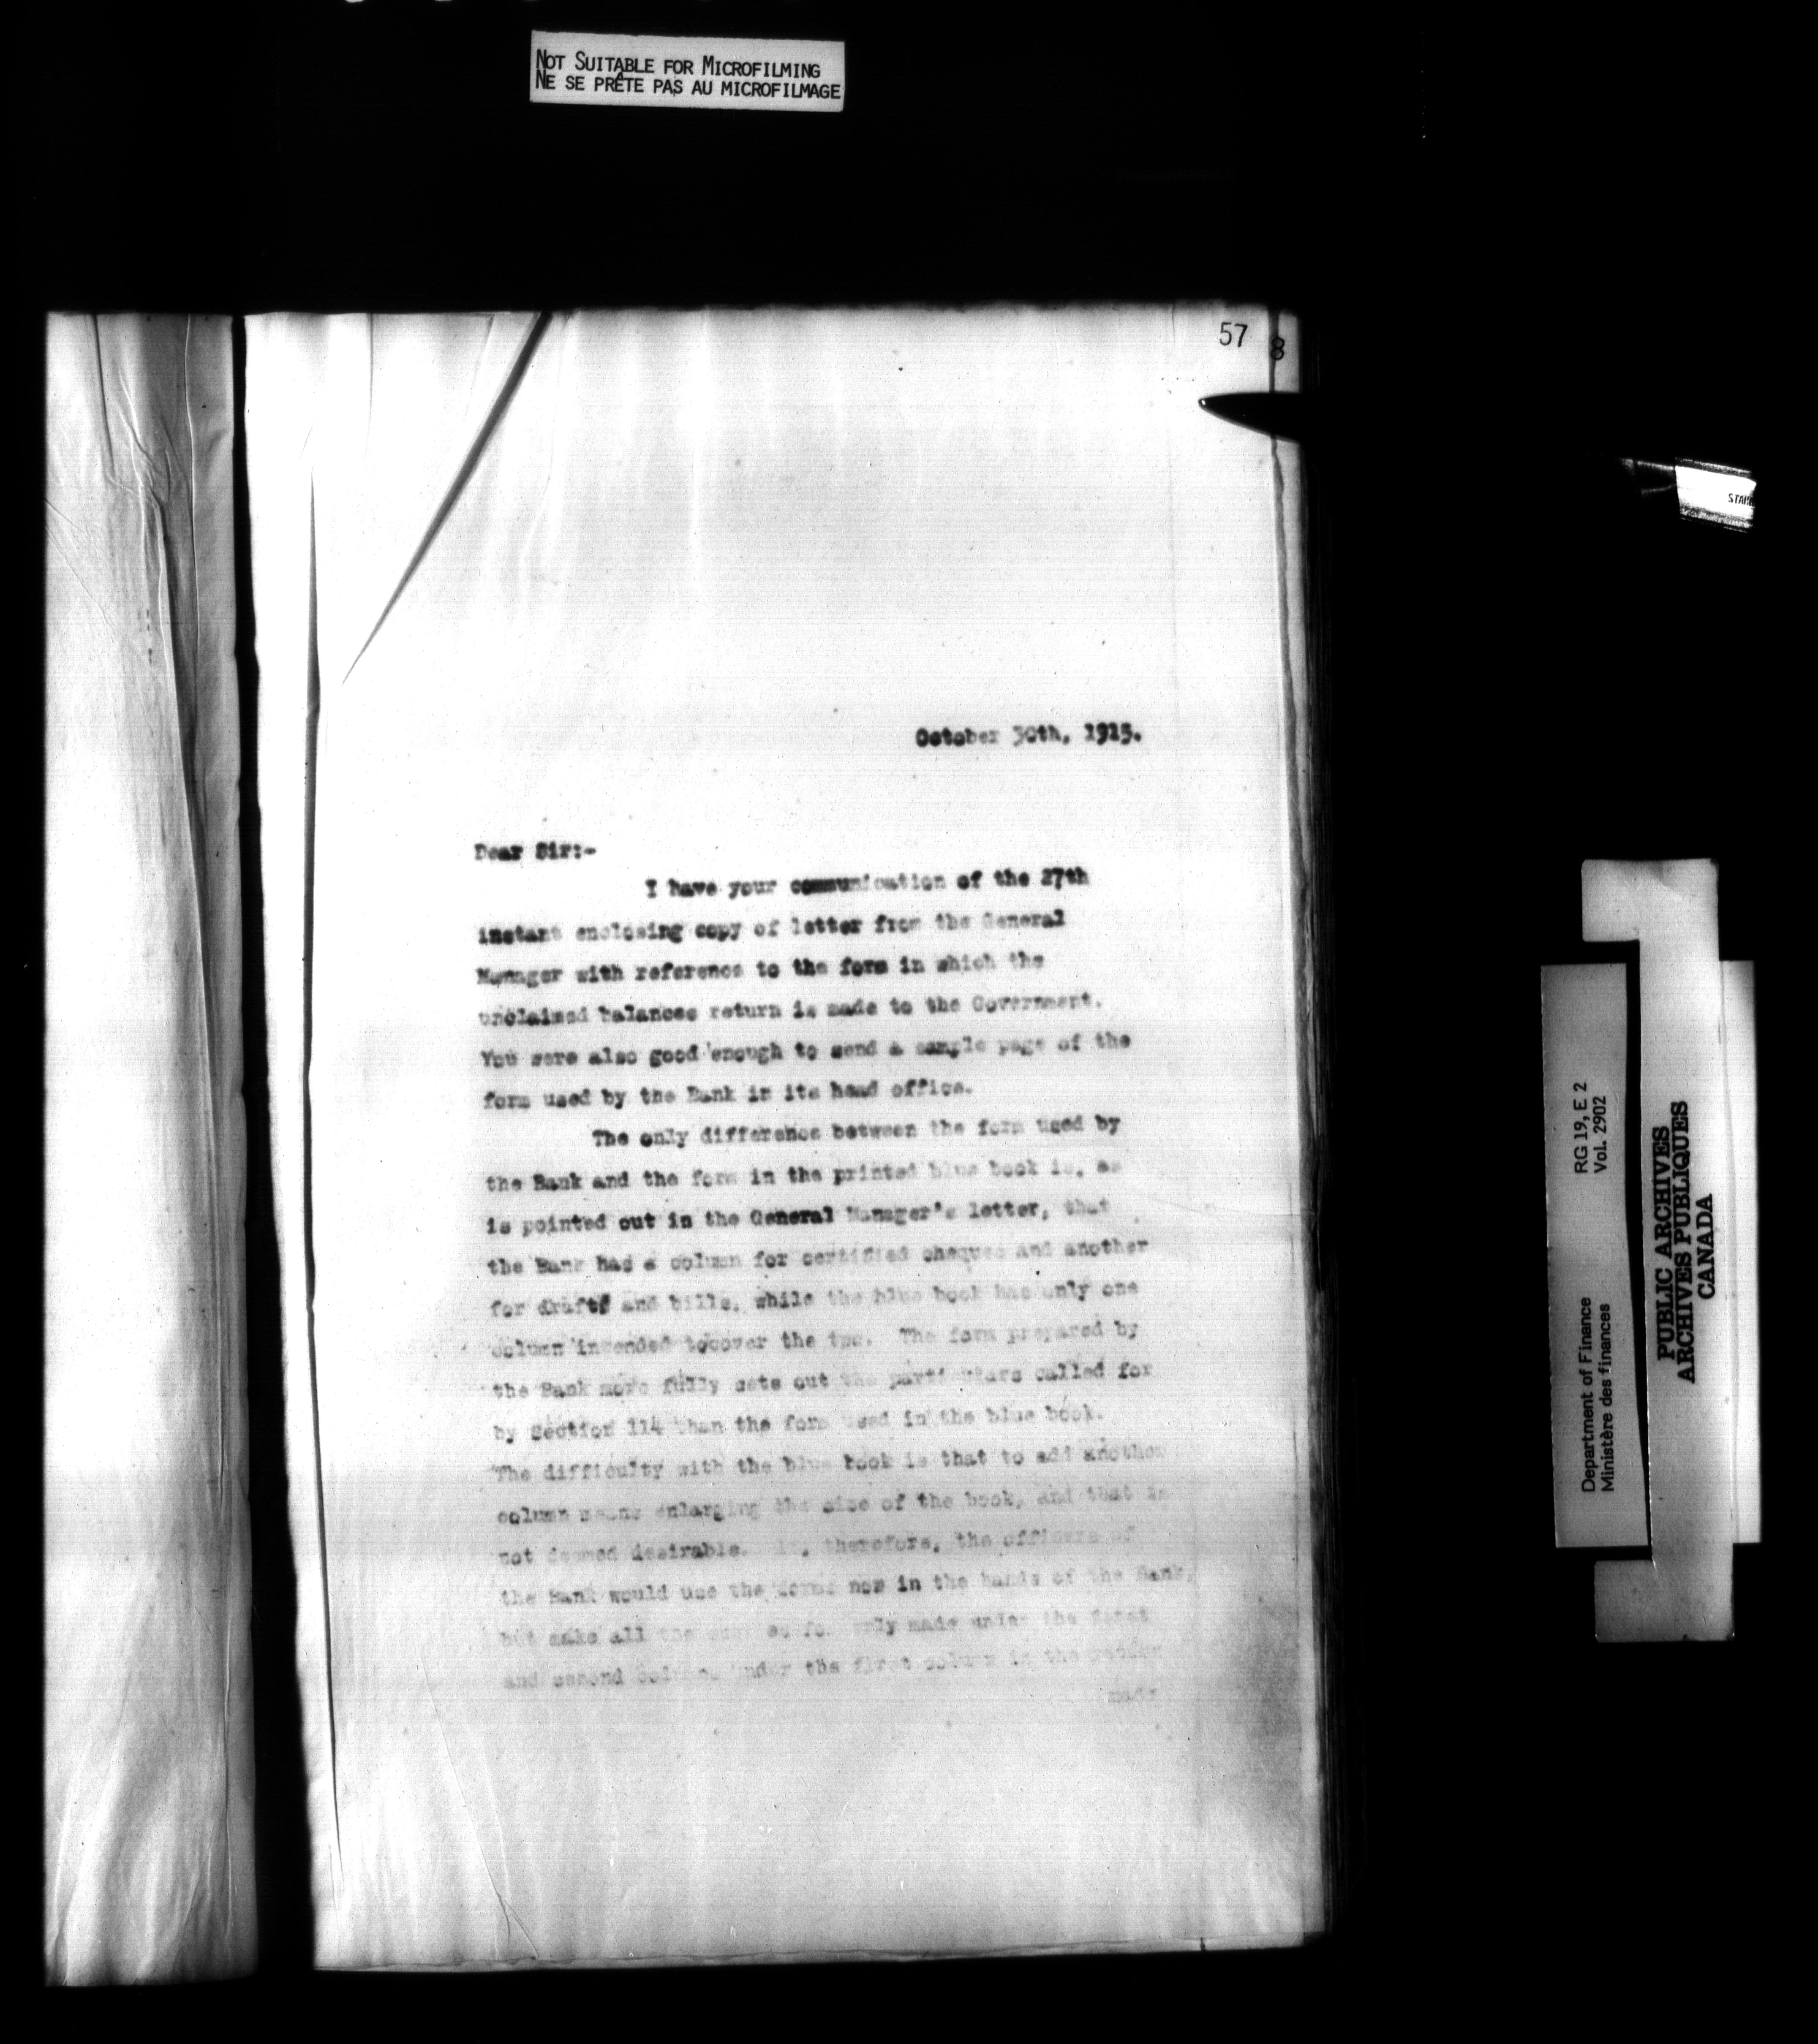 NOT SUITABLE FOR MICROFILMING
NE SE PRÊTE PAS AU MICROFILMAGE
57
8
October 30th, 1915.
Dear Sir:-
I have your communication of the 27th
instant enclosing copy of letter from the General
Manager with reference to the form in which the
unclaimed balances return is made to the Government.
You were also good enough to send a sample page of the
form used by the Bank in its head office.
The only difference between the form used by
the Bank and the form in the printed blue book is, as
is pointed out in the General Manager's letter, that
the Bank has a column for certified cheques and another
for drafts and bills, while the blue book has only one
column intended tocover the two. The form prepared by
the Bank more fully sets out the particulars called for
by Section 114 than the form used in the blue book.
The difficulty with the blue book is that to add another
column means enlarging the size of the book, and that is
not deemed desirable. If, therefore, the officers of
the Bank would use the forms now in the hands of the Bank,
but make all the made under the first
and second columns under the first column in the return
made
STAN
Department of Finance
Ministère des finances
RG 19, E 2
Vol. 2902
PUBLIC ARCHIVES
ARCHIVES PUBLIQUES
CANADA